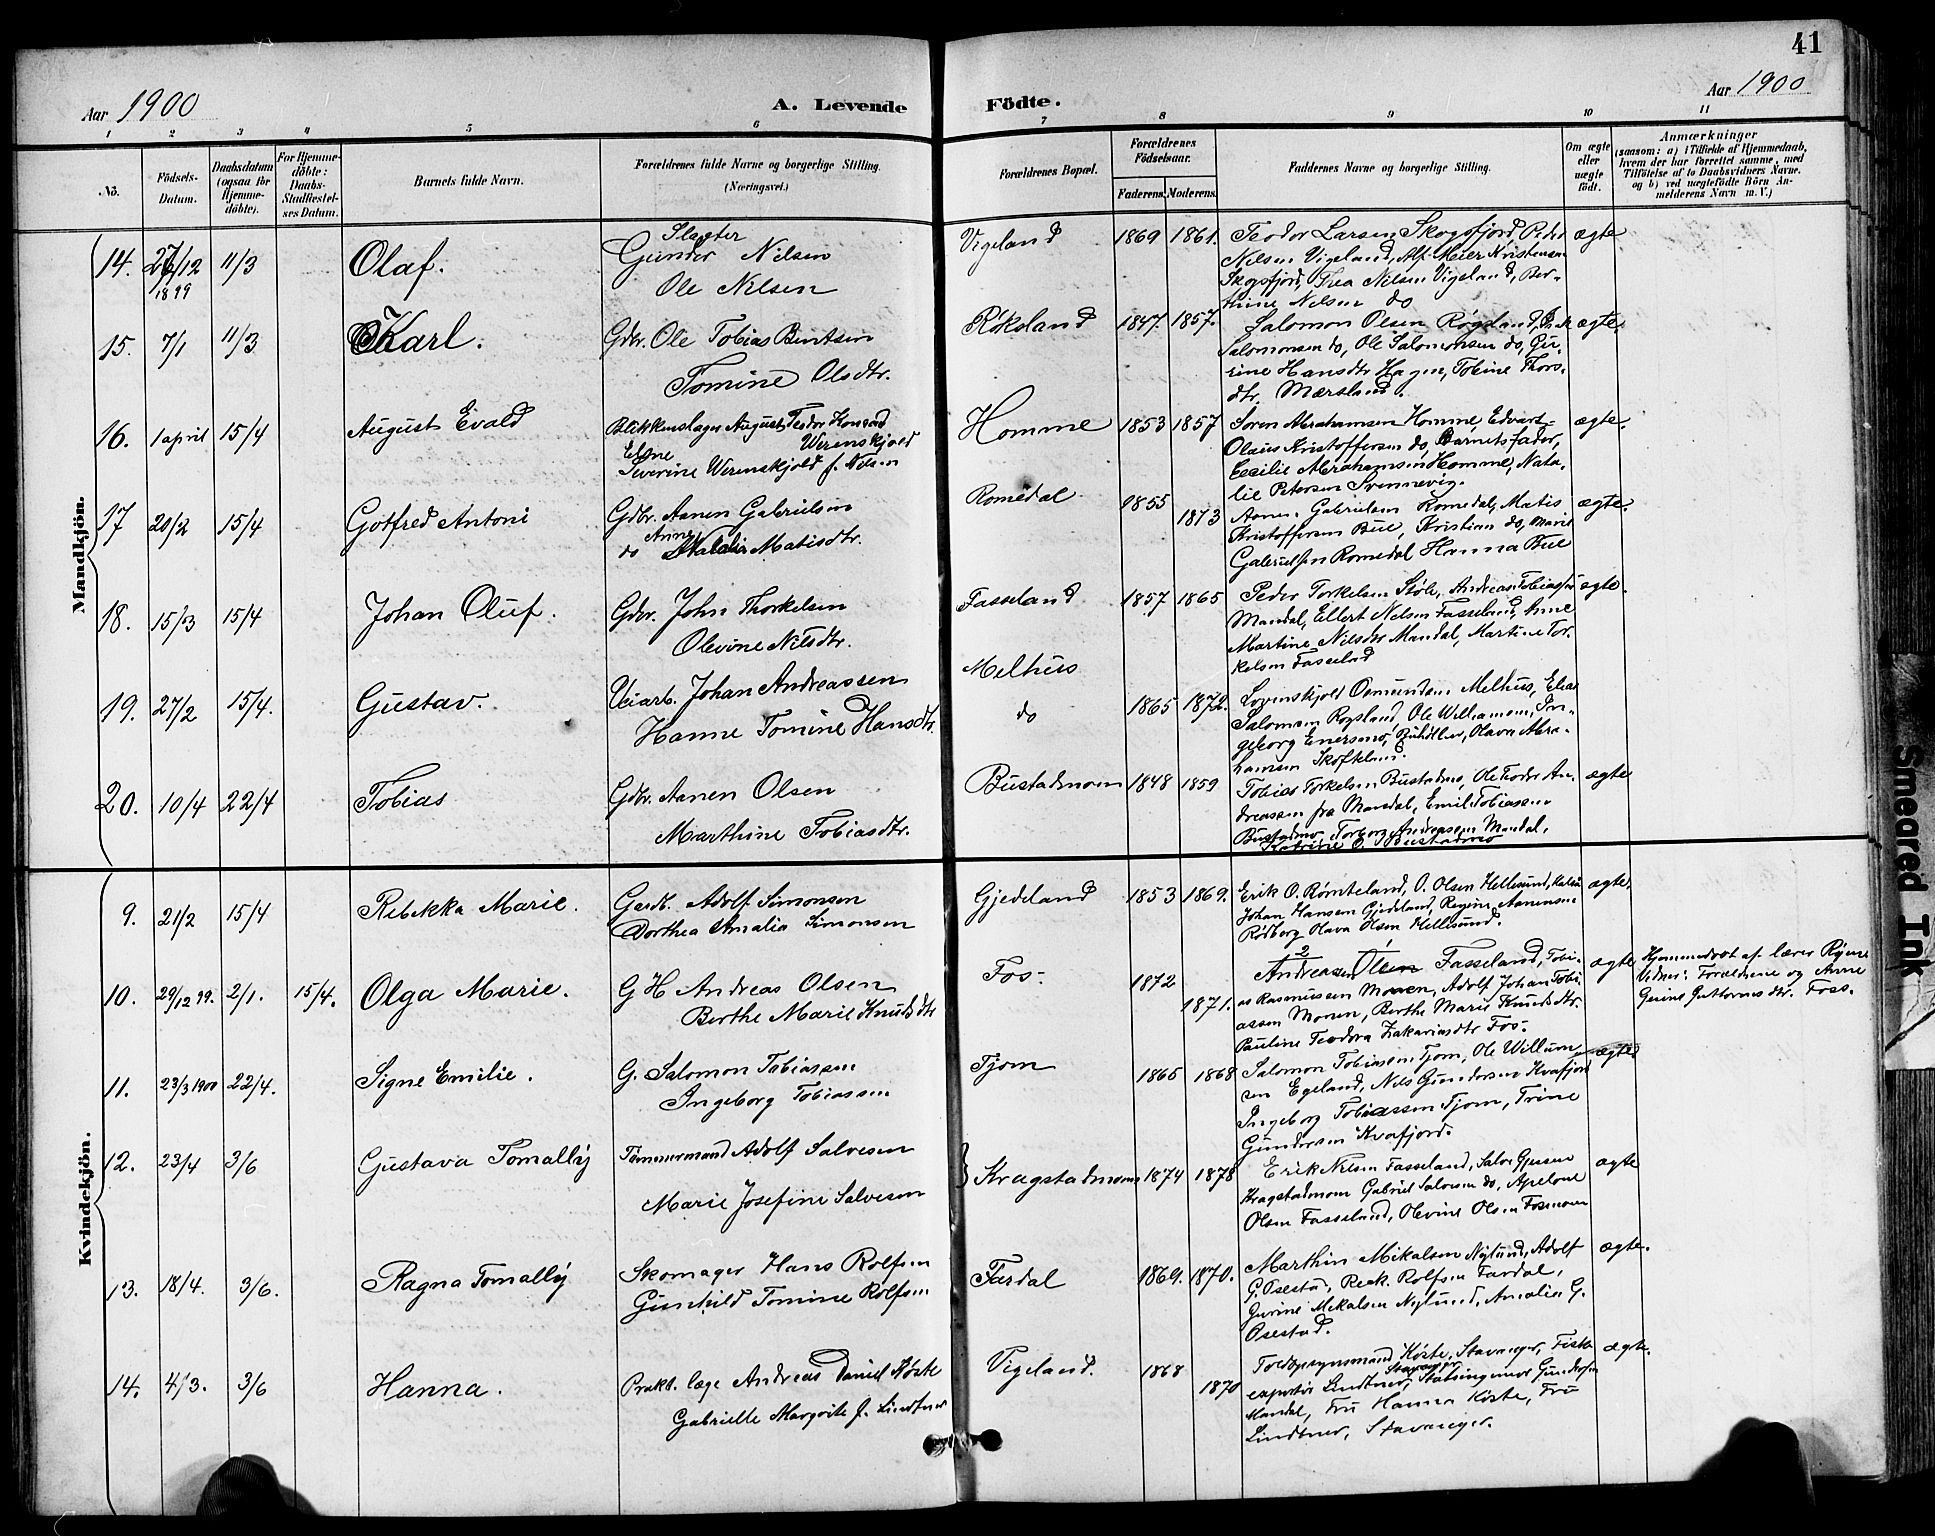 41
Aar 1900
A. Levende
Födte.
Aar 1900
1 2 3 4 5 6 7 8 9 10 11
No.
Födsels-
Datum.
Daabsdatum
(ogsaa for
Hjemme-
döbte).
For Hjemme-
döbte:
Daabs-
Stadfæstel-
ses Datum.
Barnets fulde Navn.
Forældrenes fulde Navne og borgerlige Stilling.
(Næringsvei.)
Forældrenes Bopæl.
Forældrenes
Födselsaar.
Faderens.
Moderens.
Faddernes Navne og borgerlige Stilling.
Om ægte
eller
uægte
födt.
Anmærkninger
(saasom: a) i Tilfælde af Hjemmedaab,
hvem der har forrettet samme, med
Tilföielse af to Daabsvidners Navne.
og b) ved uægtefödte Börn An-
melderens Navn m. V.)
Mandkjön.
14. 27/12 1899 11/3 Olaf.
Slagter
Gunder Nilsen
Ole Nilsen
Vigeland 1869 1861.
Teodor Larsen Skogsfjord, Peder
Nilsen Vigeland, Alf Meier Kristensen
Skogsfjord, Thea Nilsen Vigeland, Ber-
thine Nilsen do
ægte
15. 7/1 11/3 Karl.
Gdbr. Ole Tobias Berntsen
Tomine Olsdtr.
Røksland 1847. 1857.
Salomon Olsen Røgsland,
Salomonsen do, Ole Salomonsen do, Gu-
rine Hansdtr Hagen, Tobine Thors-
dtr. Mærsland.
ægte.
16. 1 april 15/4 August Evald
Blikkenslager August Teodor Konrad
Werenskjold
Elene
Severine Werenskjold f. Nilsen
Homme 1853 1857
Søren Abrahamsen Homme, Edvart
Olaus Kristoffersen do, Barnets fader,
Cecilie Abrahamsen Homme, Nata-
lie Petersen Svennevig.
ægte.
17 20/2 15/4 Gotfred Antoni
Gdbr. Aanen Gabrielsen
do Anne Natalie Matisdtr.
Romedal 1855 1873
Aanen Gabrielsen Romedal, Matis
Kristoffersen Bue, Kristian do, Marie
Gabrielsen Romedal Hanna Bue
ægte.
18. 15/3 15/4 Johan Oluf.
Gdbr. John Thorkelsen
Olevine Nilsdtr.
Fasseland 1857 1865
Peder Torkelsen Støle, Andreas Tobiassen
Mandal, Ellert Nilsen Fasseland, Anne
Martine Nilsdtr Mandal, Martine Tor-
kelsen Fasseland
ægte.
19. 27/2 15/4. Gustav.
Veiarb. Johan Andreassen
Hanne Tomine Hansdtr.
Melhus
do 1865 1872.
Osmundsen Melhus, Elias
Salomsen Rogsland, Ole Williamsen, In-
geborg Enersmo, Olava Abra-
hamsen Skofteland.
20. 10/4 22/4 Tobias
Gdbr. Aanen Olsen
Marthine Tobiasdtr.
Bustadmoen 1848 1859
Tobias Torkelsen Bustadmo, Ole Teodor An-
dreassen fra Mandal, Emil Tobiassen
Bustadmo, Torborg Andreassen Mandal,
Katrine O. Bustadmo
ægte
Kvindekjön.
9. 21/2 15/4 Rebekka Marie.
Gardb. Adolf Simonsen
Dorthea Amalia Simonsen
Gjedeland 1853 1869.
Erik O. Rømteland, O. Olsen Hellesund,
Johan Hansen Gjedeland, Regine Aanensen
Rødberg Olava Olsen Hellesund.
ægte.
10. 29/12 99. 2/1. 15/4. Olga Marie.
G H Andreas Olsen
Berthe Marie Knudsdtr
Fos. 1872 1871.
Andreassen Olsen Fasseland, Tobi-
as Rasmussen Monen, Adolf Johan Tobi-
assen Monen, Berthe Marie Knudsdtr.
Pauline Teodora Zakariasdtr Fos.
ægte
Hjemmedøbt af lærer
Vidner: Forældrene og Anne
Gurine Guttormsdtr. Foss.
11. 23/3 1900 22/4. Signe Emilie.
G. Salomon Tobiassen
Ingeborg Tobiassen
Tjom 1865 1868
Salomon Tobiassen Tjom, Ole Willum-
sen Egeland, Nils Gundersen Kvafjord
Ingeborg Tobiassen Tjom, Trine
Gundersen Kvafjord.
ægte
12. 23/4 3/6 Gustava Tomally
Tømmermand Adolf Salvesen
Marie Josefine Salvesen
Kragstadmoen 1874 1878
Erik Nilsen Fasseland, Salve Gjersen
Kragstadmoen Gabriel Salvesen do, Apelone
Olsen Fasseland, Olevine Olsen Fosmoen
ægte
13. 18/4. 3/6. Ragna Tomally
Skomager Hans Rolfsen
Gunhild Tomine Rolfsen
Fardal 1869. 1870.
Marthin Mikalsen Nylund, Adolf
G. Osestad, Reck. Rolfsen Fardal,
Gurine Mikalsen Nylund, Amalia G.
Osestad.
ægte.
14. 4/3. 3/6 Hanna.
Prakt. læge Andreas Daniel Køste
Gabrielle Margrite f. Lindtner
Vigeland. 1868 1870
Toldopsynsmand Køste, Stavanger, Fiske-
exportør Lindtner, Stavanger, Statsingeniør Gundersen
Mandal, Fru Hanna Køste, Fru
Lindtner, Stavanger.
ægte.
Smeared Ink